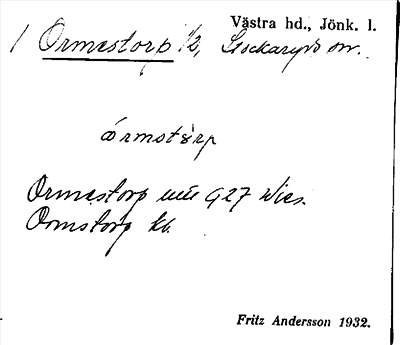 Västra hd., Jönk. l.
/ Ormestorp 1/2, Stockaryds sn.
órmstårp
Ormestorp 927 Wies.
Ormstorp kb.
Fritz Andersson 1932.